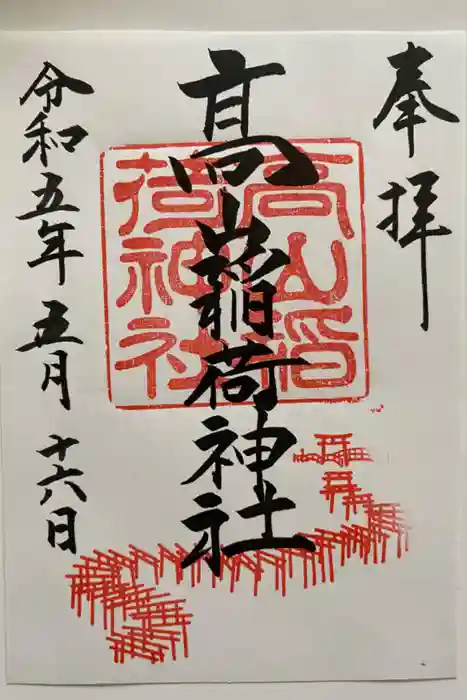 奉拝
髙山稲荷神社
高山稲荷神社
令和五年五月十六日